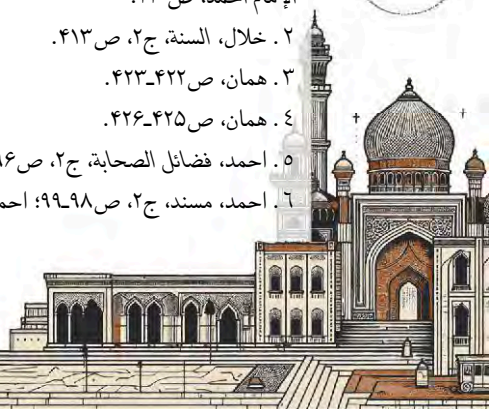 الإمام احمد، ص
۲. خلال، السنة، ج۲، ص۴۱۳.
۳. همان، ص۴۲۲ـ۴۲۳.
٤. همان، ص۴۲۵ـ۴۲۶.
۵. احمد، فضائل الصحابة، ج۲، ص
٦. احمد، مسند، ج۲، ص۹۸ـ۹۹؛ احم